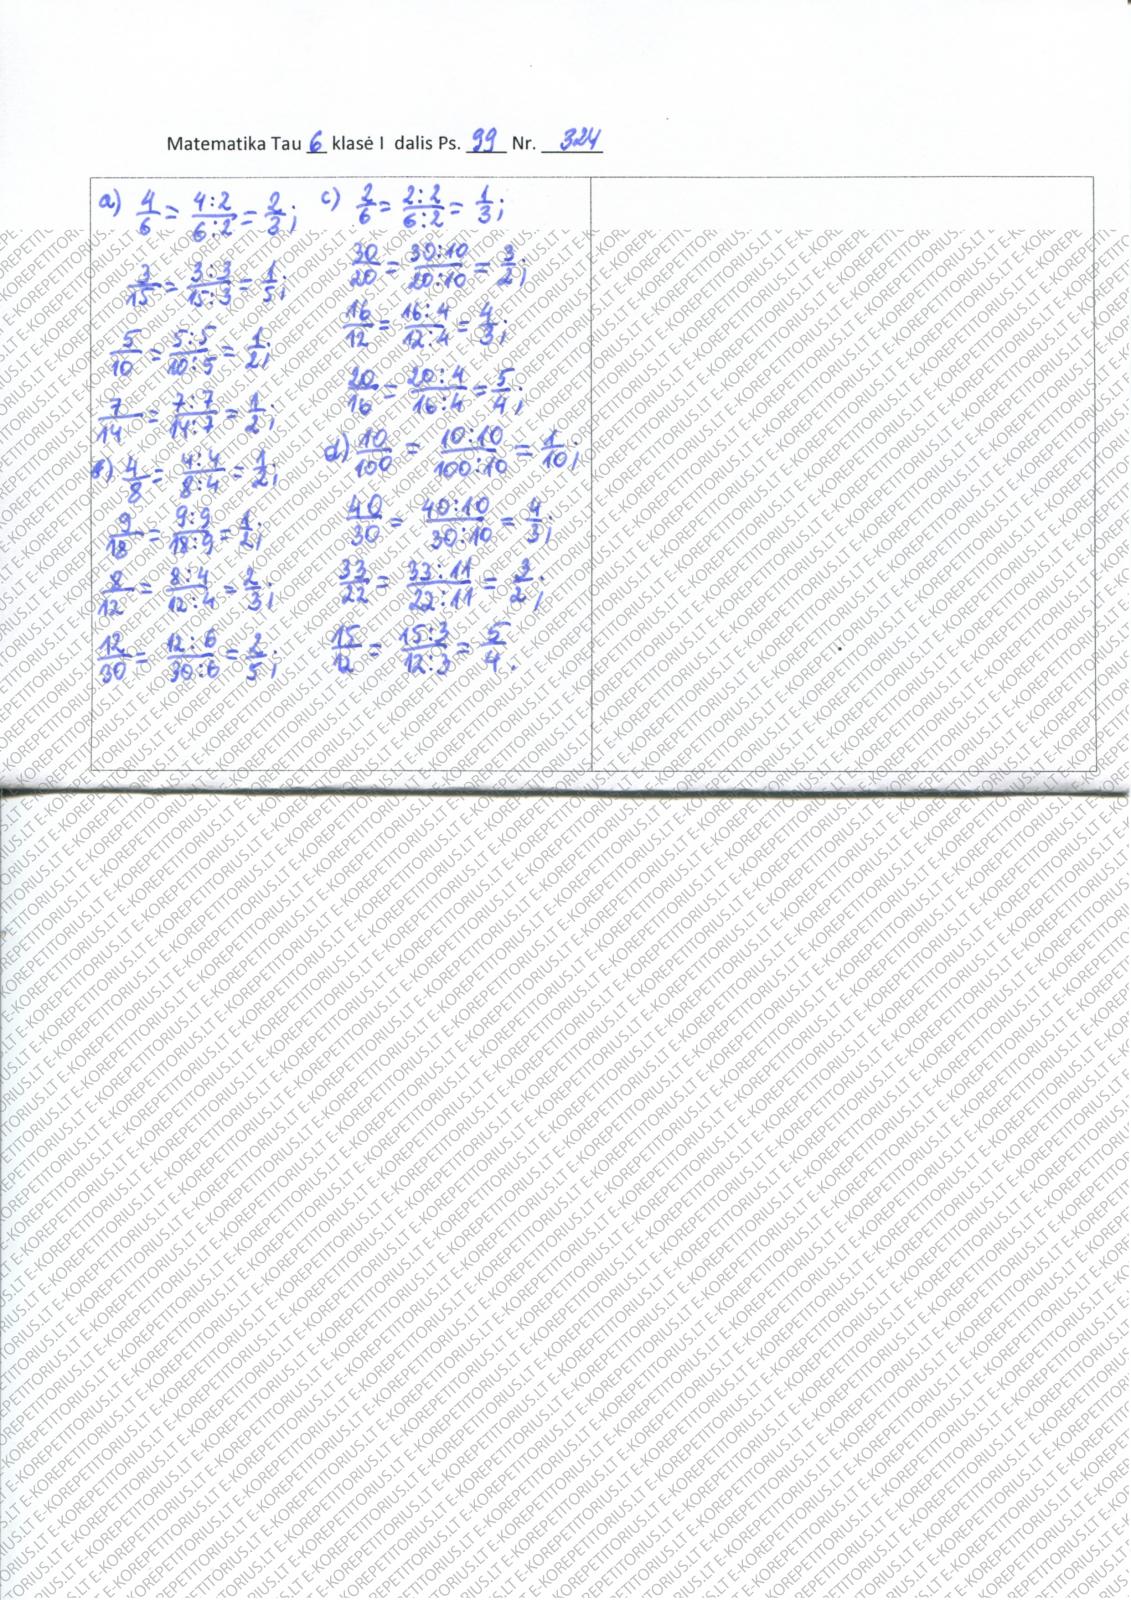 Matematika Tau 6 klasė I dalis Ps. 99 Nr. 324
a) 4/6 = 4:2/6:2 = 2/3;
3/15 = 3:3/15:3 = 1/5;
5/10 = 5:5/10:5 = 1/2;
7/14 = 7:7/14:7 = 1/2;
b) 4/8 = 4:4/8:4 = 1/2;
9/18 = 9:9/18:9 = 1/2;
8/12 = 8:4/12:4 = 2/3;
12/30 = 12:6/30:6 = 2/5;
c) 2/6 = 2:2/6:2 = 1/3;
30/20 = 30:10/20:10 = 3/2;
16/12 = 16:4/12:4 = 4/3;
20/16 = 20:4/16:4 = 5/4;
d) 10/100 = 10:10/100:10 = 1/10;
40/30 = 40:10/30:10 = 4/3;
33/22 = 33:11/22:11 = 3/2;
15/12 = 15:3/12:3 = 5/4.
E-KOREPETITORIUS.LT